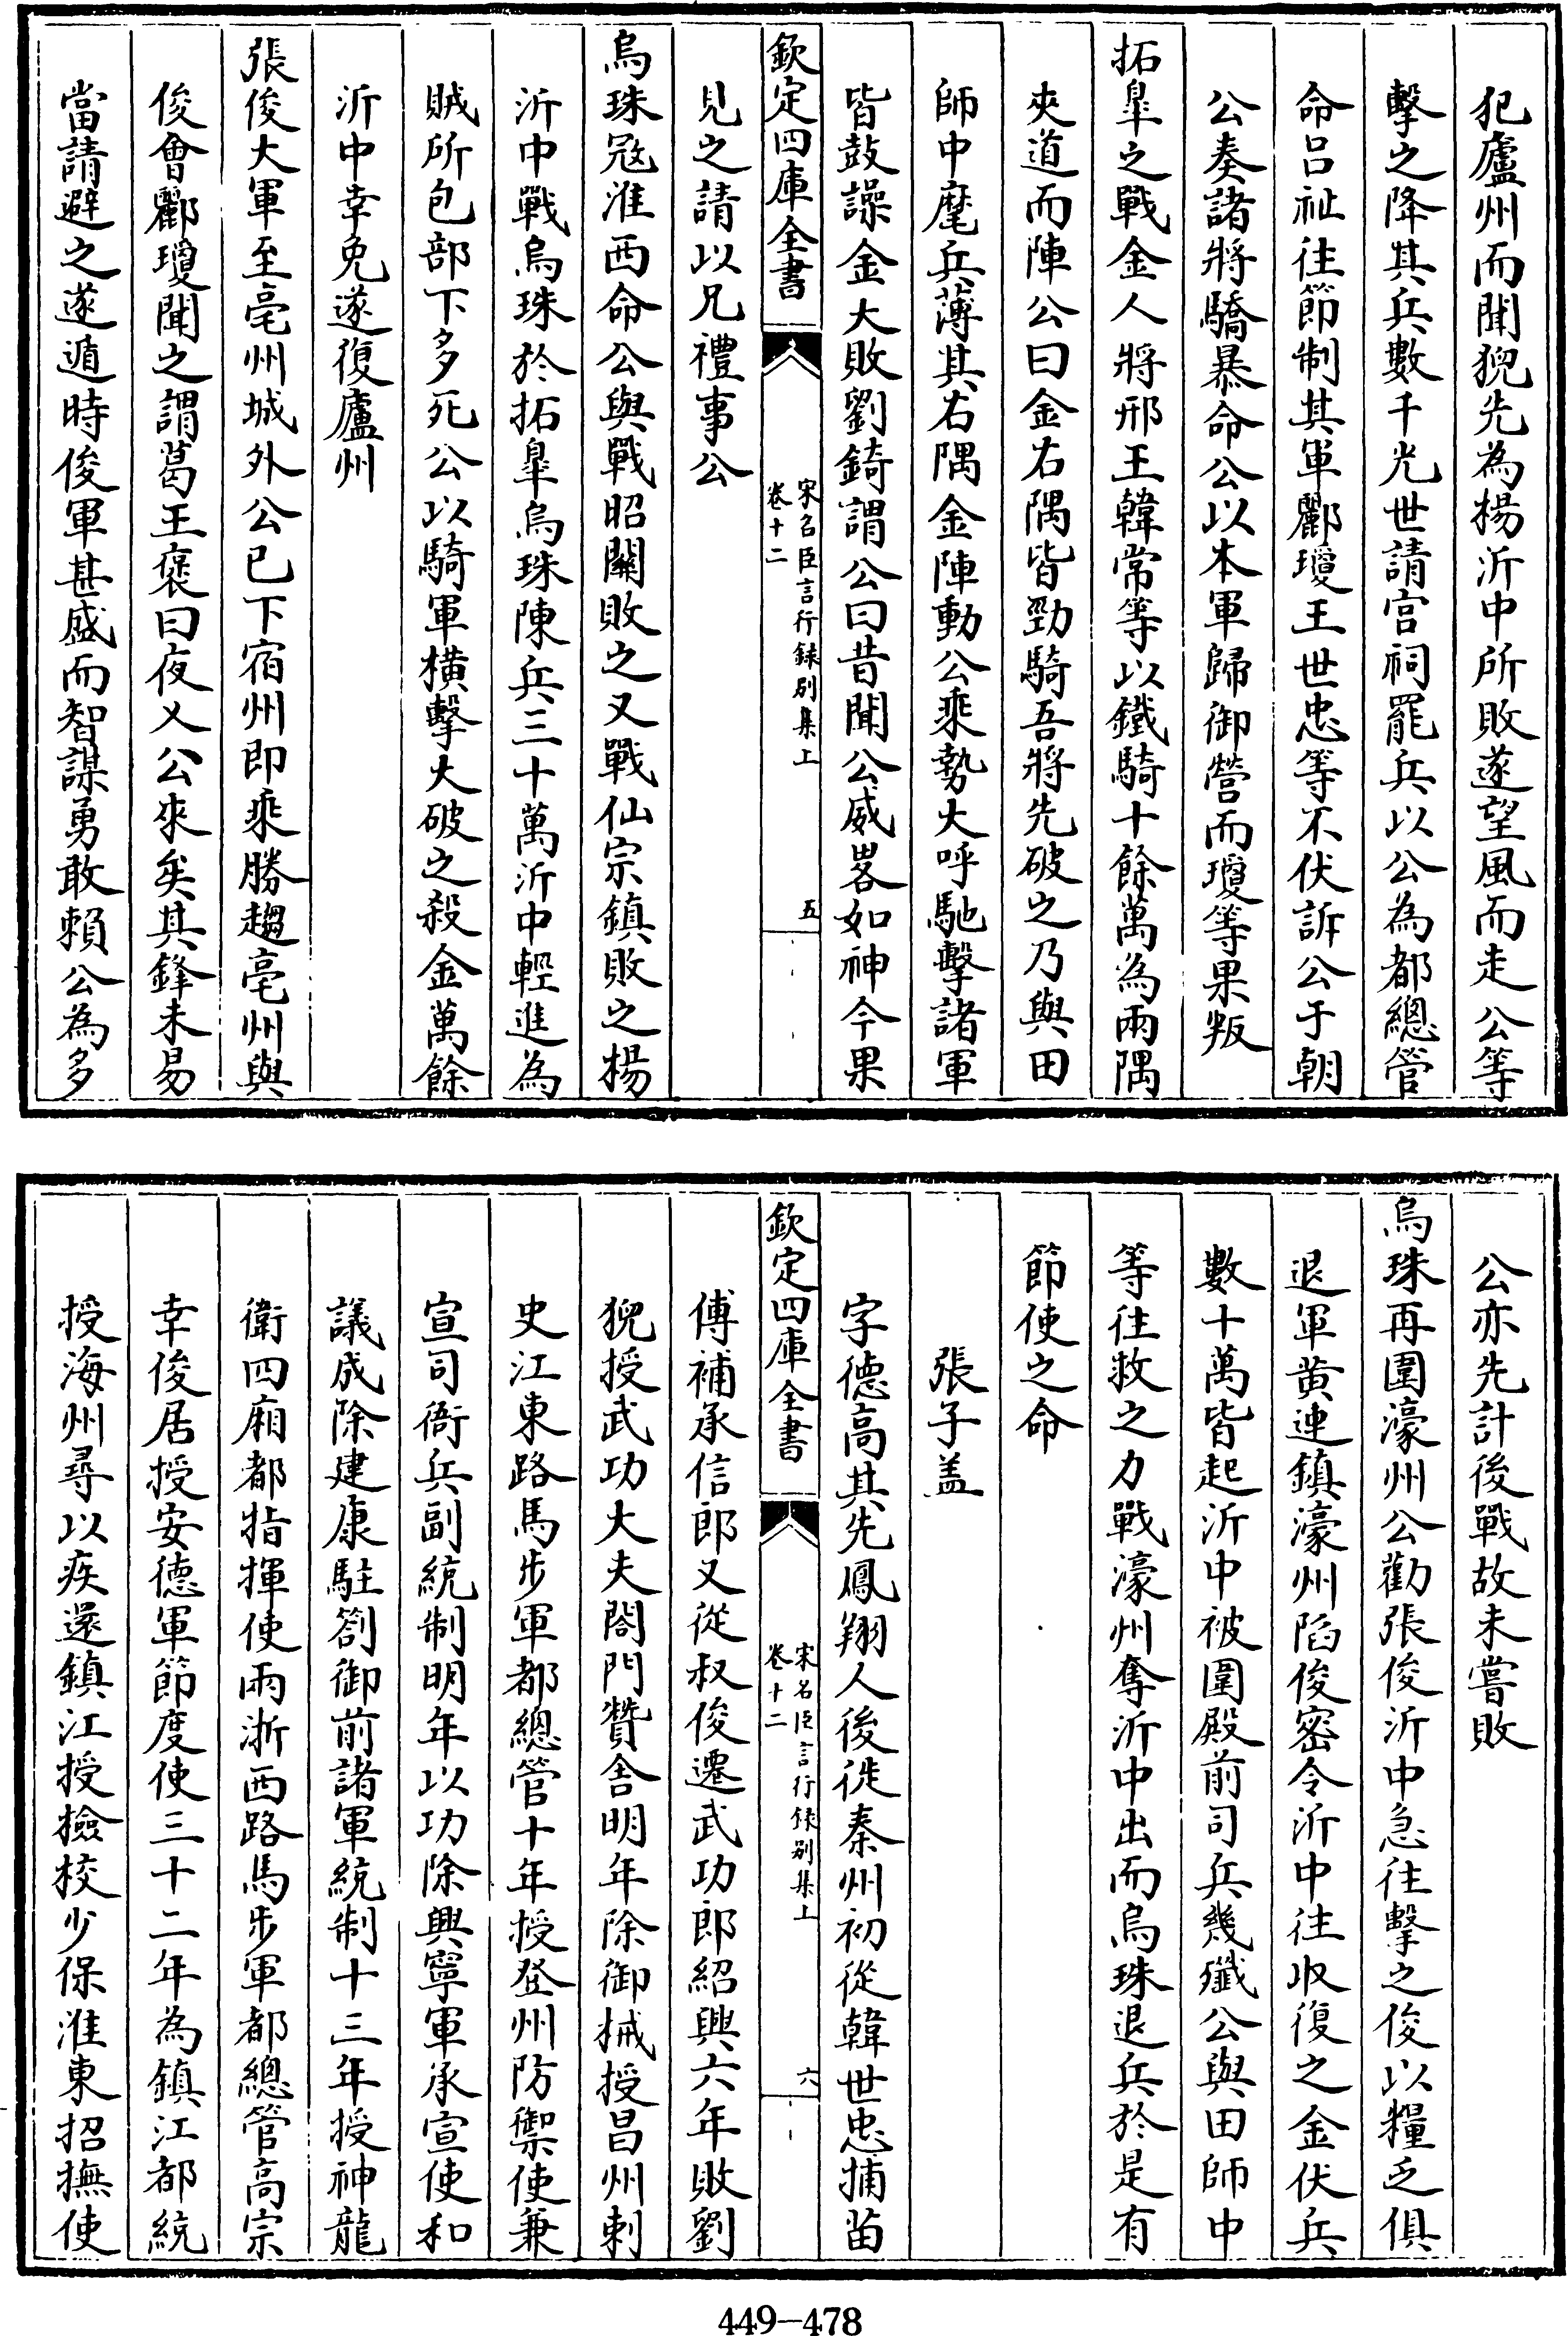 犯廬州而聞猊先為楊沂中所敗遂望風而走公等
擊之降其兵數千光世請宫祠罷兵以公為都總管
命吕祉往節制其軍酈瓊王世忠等不伏訴公于朝
公奏諸將驕暴命公以本軍歸御營而瓊等果叛
拓臯之戰金人將邢王韓常等以鐵騎十餘萬為兩隅
夾道而陣公曰金右隅皆勁騎吾將先破之乃與田
師中麾兵薄其右隅金陣動公乘勢大呼馳擊諸軍
皆鼓譟金大敗劉錡謂公曰昔聞公威畧如神今果
欽定四庫全書
宋名臣言行録别集上
卷十二
五
見之請以兄禮事公
烏珠冦淮西命公與戰昭關敗之又戰仙宗鎮敗之楊
沂中戰烏珠於拓臯烏珠陳兵三十萬沂中輕進為
賊所包部下多死公以騎軍橫擊大破之殺金萬餘
沂中幸免遂復廬州
張俊大軍至亳州城外公已下宿州即乘勝趨亳州與
俊會酈瓊聞之謂葛王褒曰夜乂公來矣其鋒未易
當請避之遂遁時俊軍甚盛而智謀勇敢賴公為多
公亦先計後戰故未嘗敗
烏珠再圍濠州公勸張俊沂中急往擊之俊以糧乏俱
退軍黄連鎮濠州陷俊密令沂中往收復之金伏兵
數十萬皆起沂中被圍殿前司兵幾殲公與田師中
等往救之力戰濠州奪沂中出而烏珠退兵於是有
節使之命
張子盖
字德高其先鳳翔人後徙秦州初從韓世忠捕苗
欽定四庫全書
宋名臣言行録别集上
卷十二
六
傅補承信郎又從叔俊遷武功郎紹興六年敗劉
猊授武功大夫閤門贊舍明年除御械授昌州刺
史江東路馬步軍都總管十年授登州防禦使兼
宣司衙兵副統制明年以功除興寧軍承宣使和
議成除建康駐劄御前諸軍統制十三年授神龍
衛四廂都指揮使兩浙西路馬步軍都總管高宗
幸俊居授安德軍節度使三十二年為鎮江都統
授海州尋以疾還鎮江授檢校少保淮東招撫使
449-478